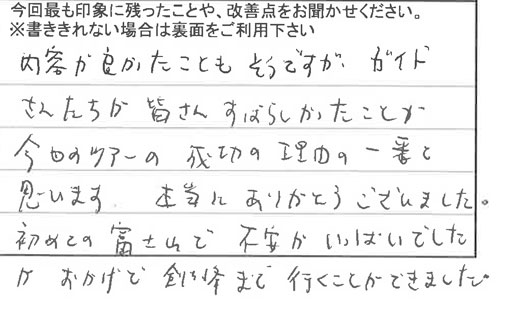 今回最も印象に残ったことや、改善点をお聞かせください。
※書ききれない場合は裏面をご利用下さい
内容が良かったことも そうですが、ガイド
さんたちが 皆さん すばらしかったことが
今回のツアーの 成功の 理由の 一番と
思います。 本当に ありがとう ございました。
初めての 富士山で 不安が いっぱいでした
が おかげで 剣ヶ峰まで 行くことができました。